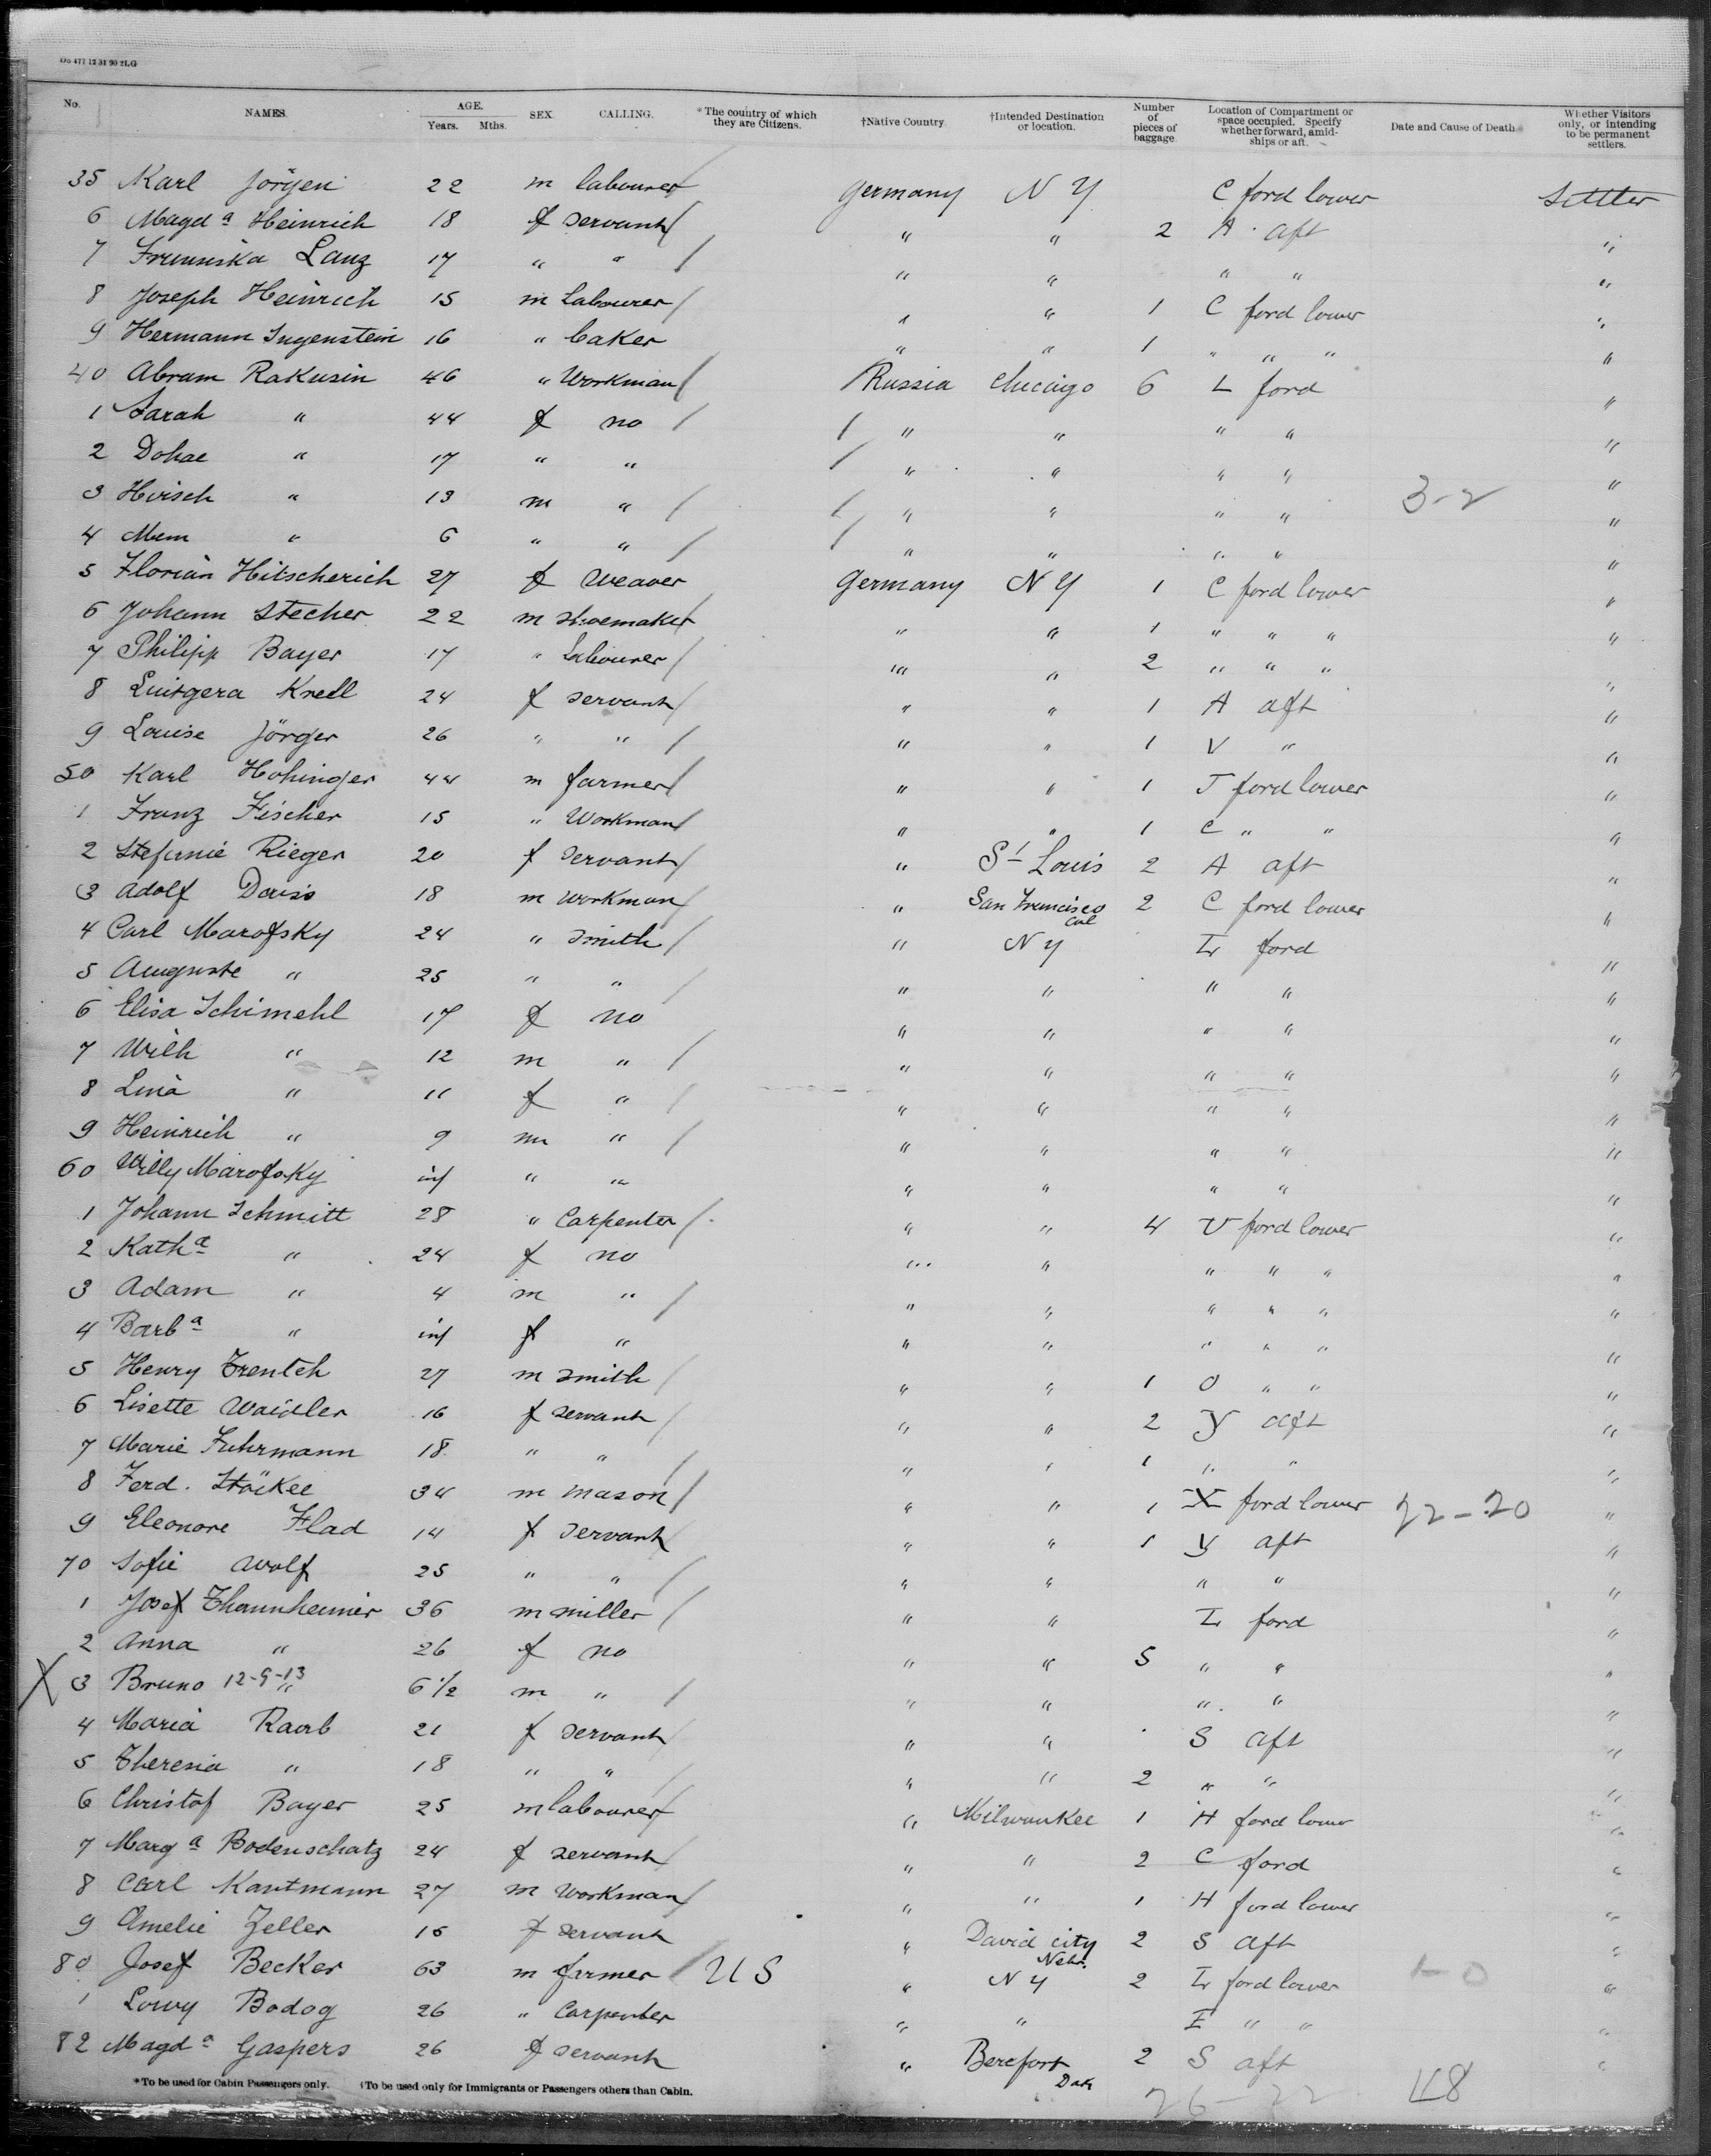 Do 477 12 31 90 2LG
No. NAMES. AGE. Years. Mths. SEX. CALLING. *The country of which they are Citizens. †Native Country. †Intended Destination or location. Number of pieces of baggage Location of Compartment or space occupied. Specify whether forward, amid-ships or aft. Date and Cause of Death. Whether Visitors only, or intending to be permanent settlers.
35 Karl Jörgen 22 m labourer Germany N Y C ford lower Settler
6 Magda Heinrich 18 f servant " " 2 A aft "
7 Franziska Lanz 17 " " " " " " "
8 Joseph Heinrich 15 m Labourer " " 1 C ford lower "
9 Hermann Ingenstein 16 " baker " " 1 " " " "
40 Abram Rakusin 46 " Workman Russia Chicago 6 L ford "
1 Sarah " 44 f no " " " " "
2 Dohae " 17 " " " " " " "
3 Hirsch " 13 m " " " " " 3-2 "
4 Mem " 6 " " " " " " "
5 Florian Hitscherich 27 f Weaver Germany N Y 1 C ford lower "
6 Johann Stecher 22 m Shoemaker " " 1 " " " "
7 Philipp Bayer 17 " Labourer " " 2 " " " "
8 Luitgera Krell 24 f servant " " 1 A aft "
9 Louise Jörger 26 " " " " 1 V " "
50 Karl Hohinger 44 m farmer " " 1 J ford lower "
1 Franz Fischer 15 " Workman " " 1 C " " "
2 Stefanie Rieger 20 f Servant " St Louis 2 A aft "
3 Adolf Dauss 18 m workman " San Francisco Cal 2 C ford lower "
4 Carl Marofsky 24 " Smith " N Y L ford "
5 Auguste " 25 " " " " " " "
6 Elisa Schimehl 17 f no " " " " "
7 Wilh " 12 m " " " " " "
8 Lina " 11 f " " " " " "
9 Heinrich " 9 m " " " " " "
60 Willy Marofsky inf " " " " " " "
1 Johann Schmitt 28 " Carpenter " " 4 V ford lower "
2 Katha " 24 f no " " " " " "
3 Adam " 4 m " " " " " " "
4 Barba " inf f " " " " " " "
5 Henry Trentch 27 m Smith " " 1 O " " "
6 Lisette Waidler 16 f servant " " 2 Y aft "
7 Marie Fuhrmann 18 " " " " 1 " " "
8 Ferd. Stäckee 34 m mason " " 1 X ford lower 22-20 "
9 Eleonore Flad 14 f servant " " 1 Y aft "
70 Sofie Wolf 25 " " " " " " "
1 Josef Thannheimer 36 m miller " " L ford "
2 Anna " 26 f no " " 5 " " "
X 3 Bruno 12-9-13 " 6 1/2 m " " " " " "
4 Maria Raab 21 f servant " " S aft "
5 Theresia " 18 " " " " 2 " " "
6 Christof Bayer 25 m labourer " Milwaukee 1 H ford lower "
7 Marga Bodenschatz 24 f servant " " 2 C ford "
8 Carl Kautmann 27 m Workman " " 1 H ford lower "
9 Amelie Zeller 16 f servant " David city Nebr. 2 S aft "
80 Josef Becker 63 m farmer U S " N Y 2 L ford lower 1-0 "
1 Lowy Bodog 26 " Carpenter " " I " " "
82 Magda Gaspers 26 f servant " Berefort Dak 2 S aft "
*To be used for Cabin Passengers only. †To be used only for Immigrants or Passengers others than Cabin.
26-22 48